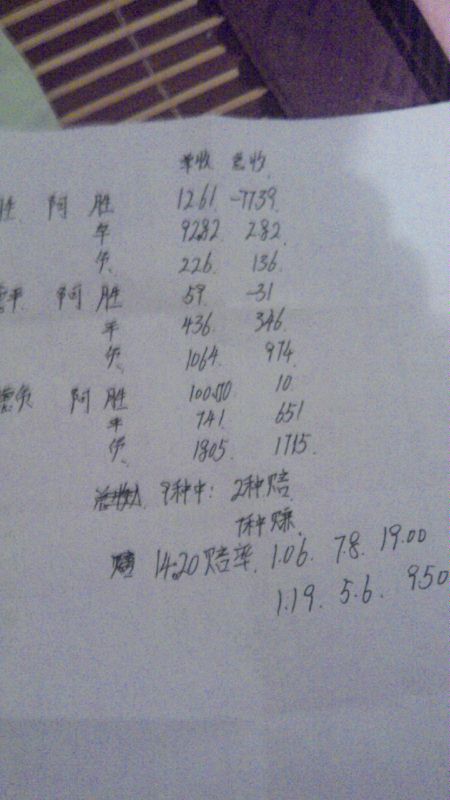 单收 总收
胜 阿 胜 1261 -7739
平 9282 282
负 226 136
德平 阿 胜 59 -31
平 436 346
负 1064 974
德负 阿 胜 100.70 10
平 741 651
负 1805 1715
9种中: 2种赔
7种赚
14:20赔率 1.06. 7.8. 19.00
1.19. 5.6. 9.50